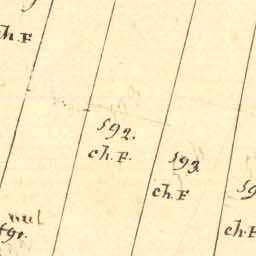 ch. F
592.
ch. F.
593.
ch. F
59
ch. F
nul